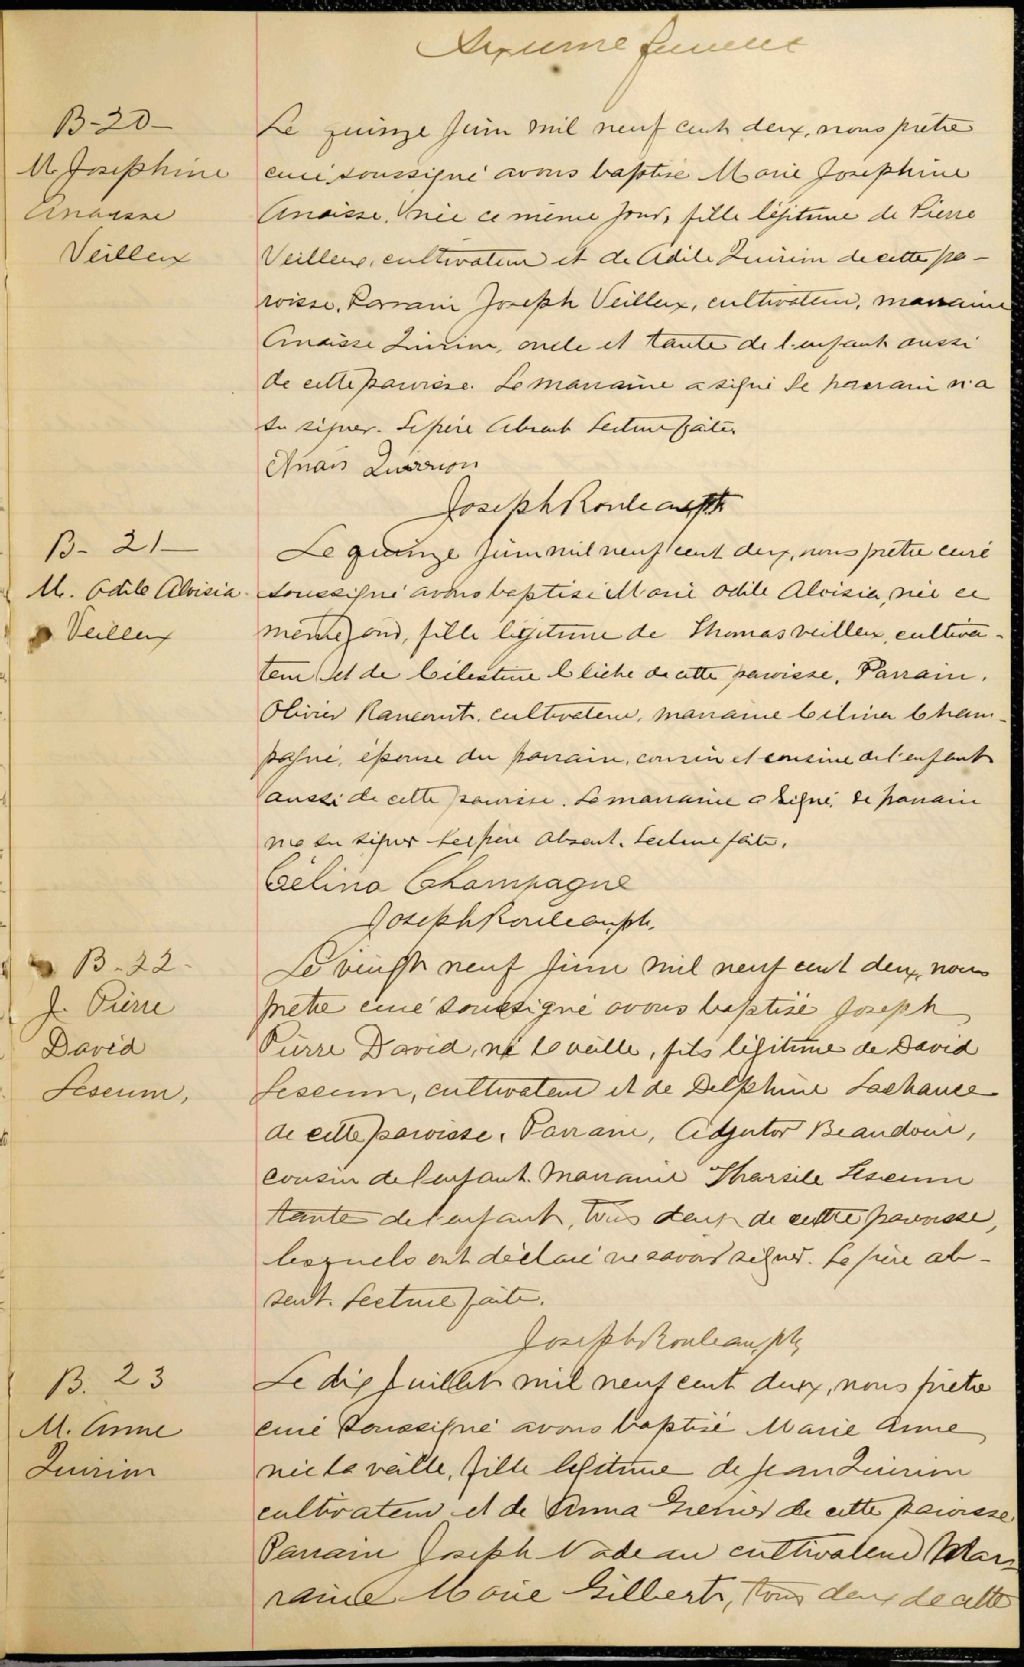 Sixième feuillet
B-20-
M. Josephine
Anaïsse
Veilleux
Le quinze Juin mil neuf cent deux, nous prêtre
curé soussigné avons baptisé Marie Josephine
Anaïsse, née ce même jour, fille légitime de Pierre
Veilleux, cultivateur et de Adile Quirion de cette pa-
roisse. Parrain Joseph Veilleux, cultivateur, marraine
Anaïsse Quirion, oncle et tante de l'enfant aussi
de cette paroisse. La marraine a signé le parrain n'a
su signer. Le père absent Lecture faite.
Anaïs Quirion
Joseph Rouleau ptr
B- 21-
M. Odile Aloisia
Veilleux
Le quinze Juin mil neuf cent deux, nous prêtre curé
soussigné avons baptisé Marie Odile Aloisia, née ce
même jour, fille légitime de Thomas Veilleux, cultiva-
teur et de Célestine Cliche de cette paroisse. Parrain,
Olivier Rancourt, cultivateur, marraine Célina Cham-
pagne, épouse du parrain, cousin et cousine de l'enfant
aussi de cette paroisse. La marraine a signé, le parrain
n'a su signer Le père absent. Lecture faite.
Célina Champagne
Joseph Rouleau, ptr.
B-22-
J. Pierre
David
Lessum,
Le vingt neuf Juin mil neuf cent deux, nous
prêtre curé soussigné avons baptisé Joseph
Pierre David, né la veille, fils légitime de David
Lessum, cultivateur et de Delphine Lachance
de cette paroisse. Parrain, Adjutor Beaudoin,
cousin de l'enfant. Marraine Tharsile Lessum
tante de l'enfant, tous deux de cette paroisse,
lesquels ont déclaré ne savoir signer. Le père ab-
sent. Lecture faite.
Joseph Rouleau, ptr
B. 23
M. Anne
Quirion
Le dix Juillet mil neuf cent deux, nous prêtre
curé soussigné avons baptisé Marie Anne
née la veille, fille légitime de Jean Quirion
cultivateur et de Anna Grenier de cette paroisse
Parrain Joseph Nadeau cultivateur Mar-
raine Marie Gilbert, tous deux de cette